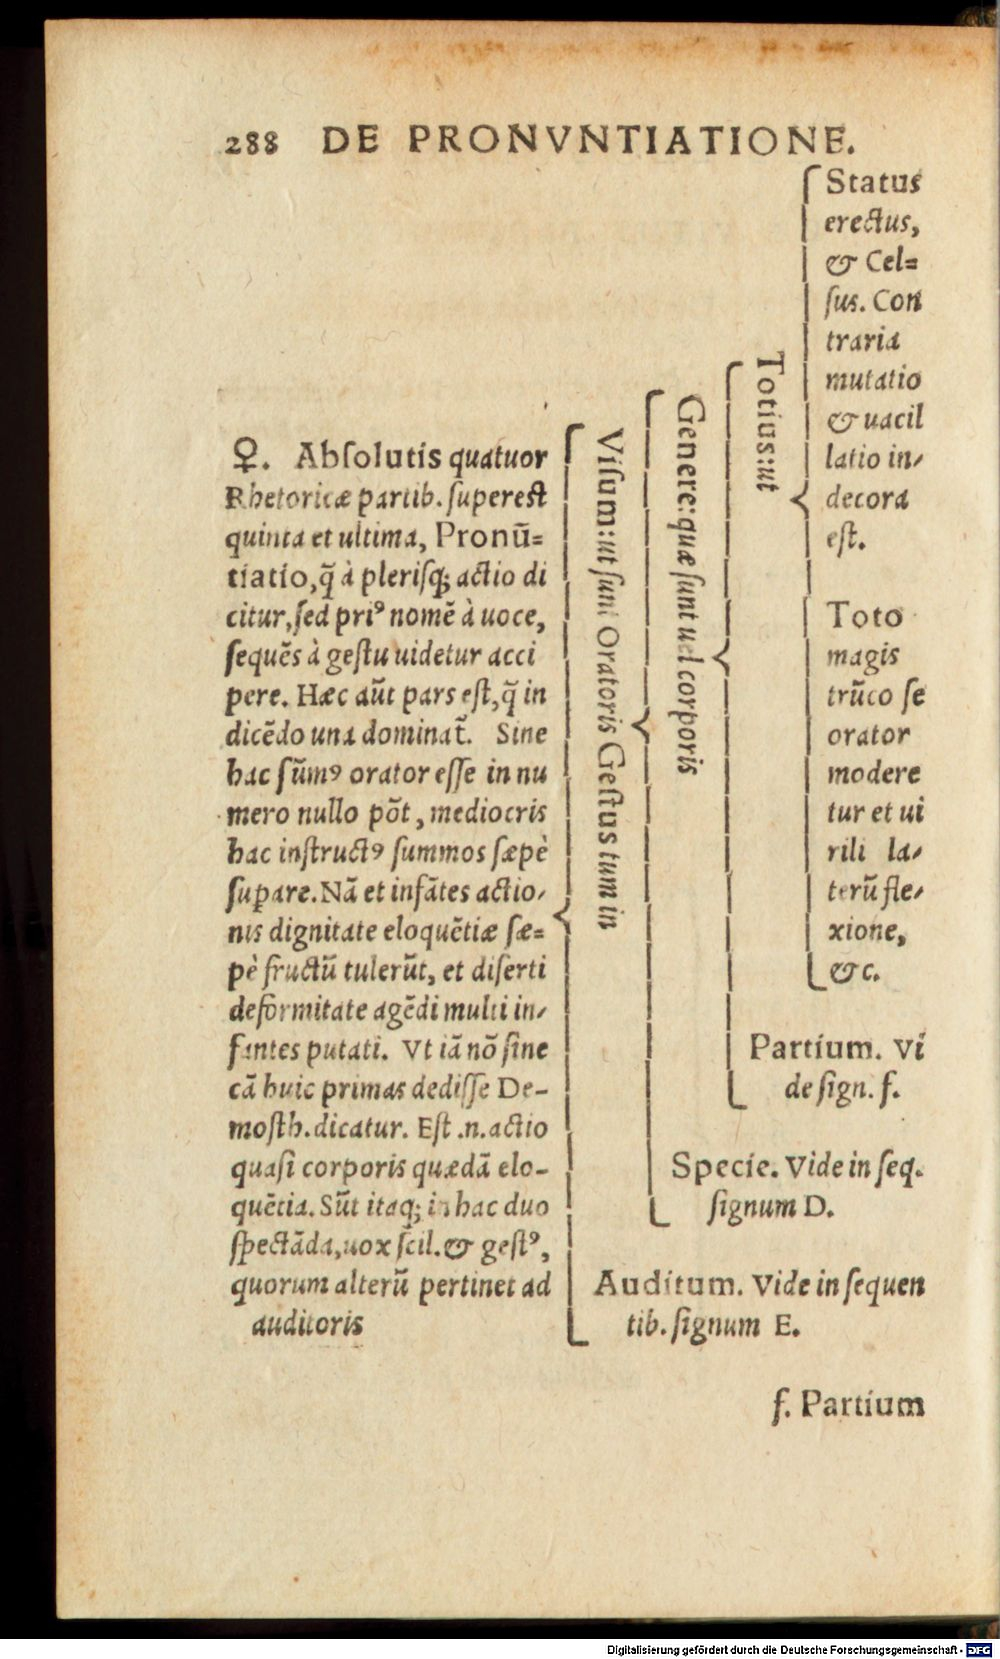 288 DE PRONVNTIATIONE.
♀. Abſolutis quatuor
Rhetoricæ partib. ſupereſt
quinta et ultima, Pronū=
tiatio, q̃ à pleriſq; actio di
citur, ſed pri⁹ nomē à uoce,
ſequēs à geſtu uidetur acci
pere. Hæc aūt pars eſt, q̃ in
dicēdo una dominat̃. Sine
hac ſūm⁹ orator eſſe in nu
mero nullo pōt, mediocris
hac inſtruct⁹ ſummos ſæpè
ſuꝑare. Nā et infātes actio-
nis dignitate eloquētiæ ſæ=
pè fructū tulerūt, et diſerti
deformitate agēdi multi in-
fantes putati. Vt iā nō ſine
cā huic primas dediſſe De-
moſth. dicatur. Eſt .n. actio
quaſi corporis quædā elo-
quētia. Sūt itaq; in hac duo
ſpectāda, uox ſcil. & geſt⁹,
quorum alterū pertinet ad
auditoris
Viſum: ut ſunt Oratoris Geſtus tum in
Genere: quæ ſunt uel corporis
Totius: ut
Status
erectus,
& Cel=
ſus. Con
traria
mutatio
& uacil
latio in-
decora
eſt.
Toto
magis
trūco ſe
orator
modere
tur et ui
rili la-
terū fle-
xione,
&c.
Partium. Vi
de ſign. f.
Specie. Vide in ſeq.
ſignum D.
Auditum. Vide in ſequen
tib. ſignum E.
f. Partium
Digitalisierung gefördert durch die Deutsche Forschungsgemeinschaft - DFG